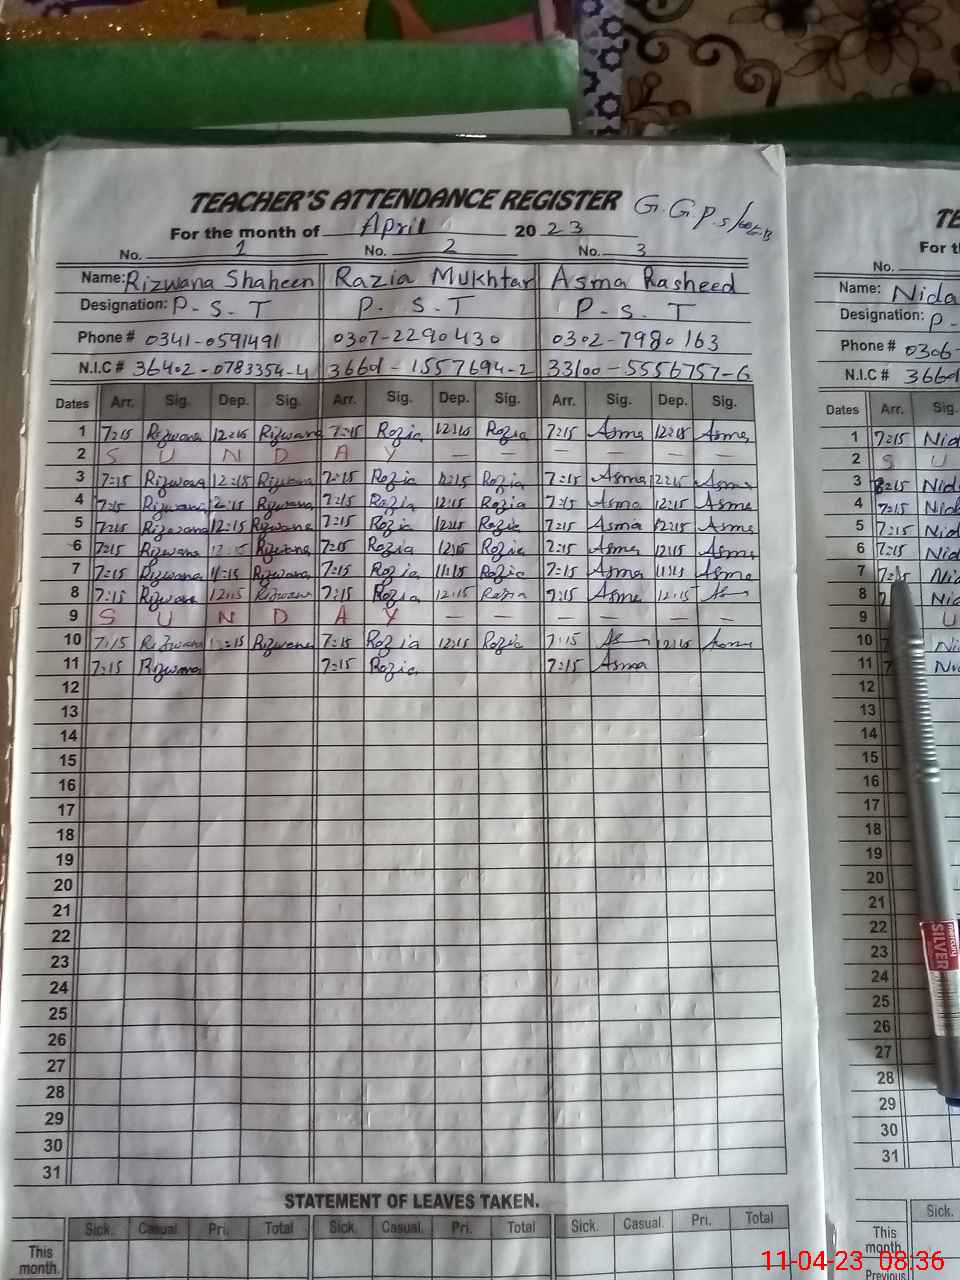 TEACHER'S ATTENDANCE REGISTER G.G.P.S
For the month of April 2023
No. 1 No. 2 No. 3
Name: Rizwana Shaheen Razia Mukhtar Asma Rasheed
Designation: P-S-T P-S-T P-S-T
Phone # 0341-0591491 0307-2290430 0302-7980163
N.I.C # 36402-0783354-4 36601-1557694-2 33100-5556757-6
Dates Arr. Sig. Dep. Sig. Arr. Sig. Dep. Sig. Arr. Sig. Dep. Sig.
1 7:15 Rizwana 12:15 Rizwana 7:15 Rozia 12:15 Rozia 7:15 Asma 12:15 Asma
2 S U N D A Y — — — — — —
3 7:15 Rizwana 12:15 Rizwana 7:15 Rozia 12:15 Rozia 7:15 Asma 12:15 Asma
4 7:15 Rizwana 12:15 Rizwana 7:15 Rozia 12:15 Rozia 7:15 Asma 12:15 Asma
5 7:15 Rizwana 12:15 Rizwana 7:15 Rozia 12:15 Rozia 7:15 Asma 12:15 Asma
6 7:15 Rizwana 12:15 Rizwana 7:15 Rozia 12:15 Rozia 7:15 Asma 12:15 Asma
7 7:15 Rizwana 11:15 Rizwana 7:15 Rozia 11:15 Rozia 7:15 Asma 11:15 Asma
8 7:15 Rizwana 12:15 Rizwana 7:15 Rozia 12:15 Rozia 7:15 Asma 12:15
9 S U N D A Y — — — — — —
10 7:15 Rizwana 12:15 Rizwana 7:15 Rozia 12:15 Rozia 7:15 12:15 Asma
11 7:15 Rizwana 7:15 Rozia 7:15 Asma
12
13
14
15
16
17
18
19
20
21
22
23
24
25
26
27
28
29
30
31
STATEMENT OF LEAVES TAKEN.
Sick. Casual. Pri. Total Sick. Casual. Pri. Total Sick. Casual. Pri. Total
This month.
TE
For t
No.
Name: Nida
Designation: P-
Phone # 0306-
N.I.C # 3660
Dates Arr. Sig.
1 7:15 Nid
2 S U
3 7:15 Nid
4 7:15 Nid
5 7:15 Nid
6 7:15 Nid
7 7:15 Nid
8 Nid
9 U
10 Ni
11
12
13
14
15
16
17
18
19
20
21
22
23
24
25
26
27
28
29
30
31
Sick.
This month
Previous
mercury SILVER
11-04-23 08:36